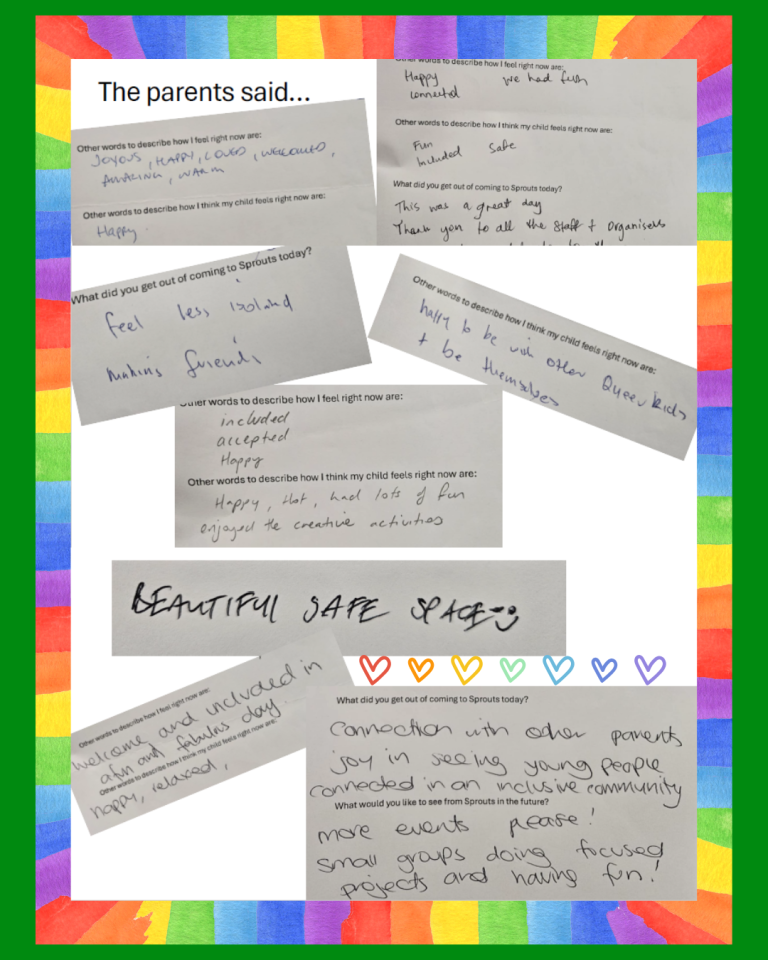 The parents said...
Other words to describe how I feel right now are:
JOYOUS, HAPPY, LOVED, WELCOMED,
AMAZING, WARM
Other words to describe how I think my child feels right now are:
Happy.
Other words to describe how I feel right now are:
Happy we had fun
connected
Other words to describe how I think my child feels right now are:
Fun Safe
Included
What did you get out of coming to Sprouts today?
This was a great day
Thank you to all the Staff + Organisers
What did you get out of coming to Sprouts today?
feel less isolated
making friends
Other words to describe how I think my child feels right now are:
happy to be with other Queer kids
+ be themselves
Other words to describe how I feel right now are:
included
accepted
Happy
Other words to describe how I think my child feels right now are:
Happy, Hot, had lots of fun
enjoyed the creative activities
BEAUTIFUL SAFE SPACE
Other words to describe how I feel right now are:
welcome and included in
a fun and fabulus day
Other words to describe how I think my child feels right now are:
happy, relaxed,
What did you get out of coming to Sprouts today?
Connection with other parents
joy in seeing young people
connected in an inclusive community
What would you like to see from Sprouts in the future?
more events please!
small groups doing focused
projects and having fun!